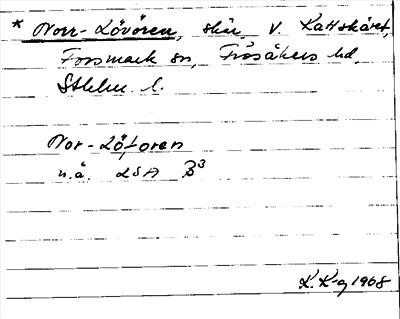 * Norr-Lövören, skär, v. Kattskäret,
Forsmark sn, Frösåkers hd,
Sthlm. l.
Nor-Löfören
n.å. LSA B³
K. K-g 1968